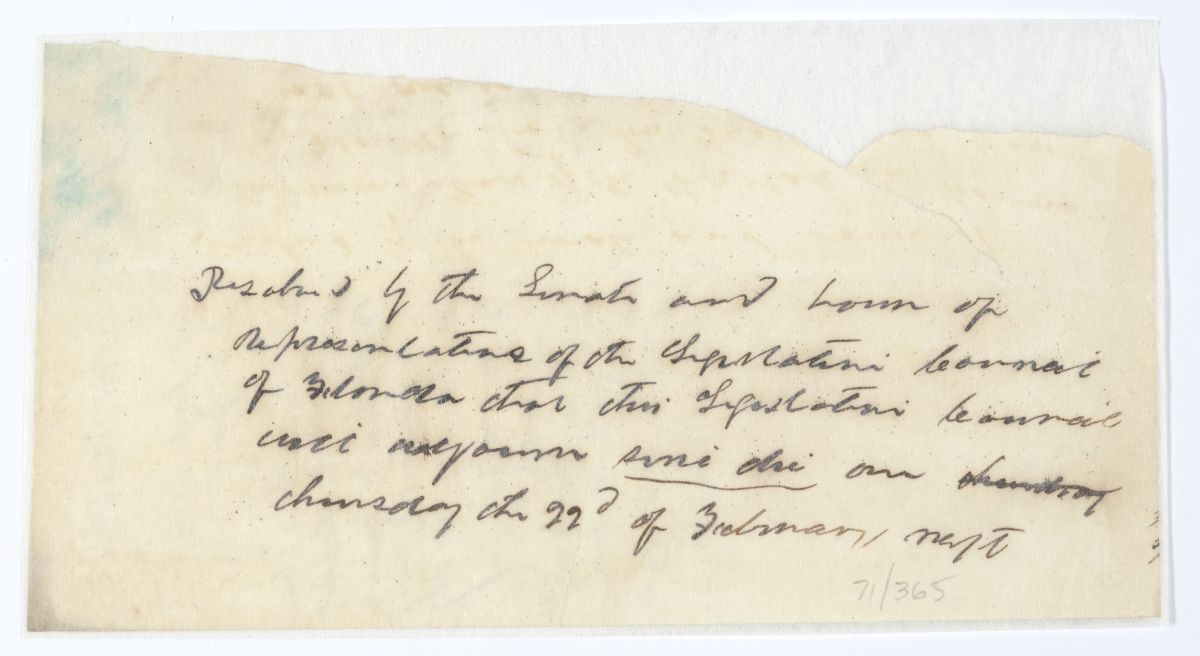 Resolved by the Senate and house of
representatives of the Legislative Council
of Florida that this Legislative Council
will adjourn sine die on thursday
thursday the 22d of February next
71/365